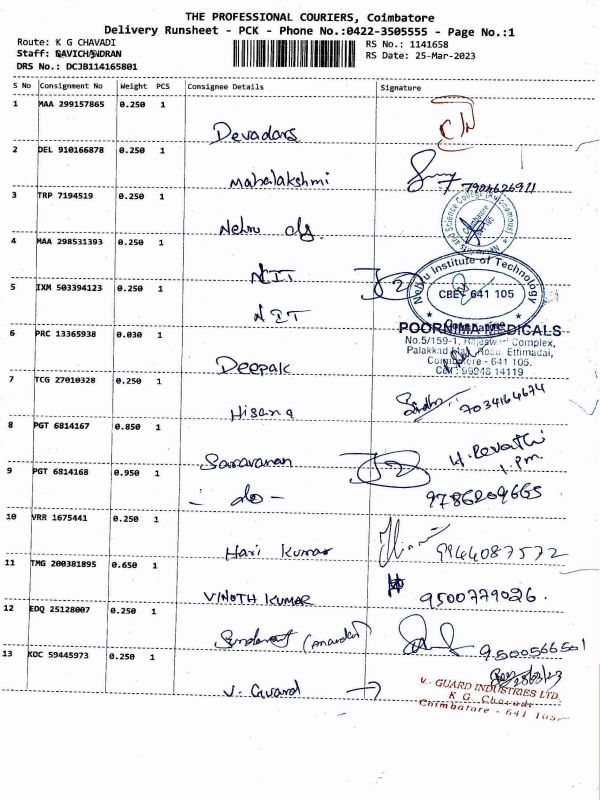 THE PROFESSIONAL COURIERS, Coimbatore
Delivery Runsheet - PCK - Phone No.:0422-3505555 - Page No.:1
Route: K G CHAVADI
RS No.: 1141658
Staff: GAVICHANDRAN
RS Date: 25-Mar-2023
DRS No.: DCJB114165801
S No Consignment No Weight PCS Consignee Details Signature
1 MAA 299157865 0.250 1 Devadars
2 DEL 910166878 0.250 1 Mahalakshmi
3 TRP 7194519 0.250 1 Nehru clg.
4 MAA 298531393 0.250 1 NIT
5 IXM 503394123 0.250 1 NIT
Nehru Institute of Technology
CBE 641 105
Coimbatore
6 PRC 13365938 0.030 1 Deepak
POORNIMA MEDICALS
No.5/159-1, Rajeswari Complex,
Palakkad Main Road, Ettimadai,
Coimbatore - 641 105.
Cell: 99948 14119
7 TCG 27010328 0.250 1 Hisana 7034164674
8 PGT 6814167 0.850 1 Saravanan H. Revathi
1. P.m.
9 PGT 6814168 0.950 1 - do - 9786209665
10 VRR 1675441 0.250 1 Hari Kumar 9944087572
11 TMG 200381895 0.650 1 VINOTH KUMAR 9500779026.
12 EDQ 25128007 0.250 1 9500566501
13 KOC 59445973 0.250 1 V. Guard
V. GUARD INDUSTRIES LTD.
K G. Chavadi
Coimbatore - 641 105